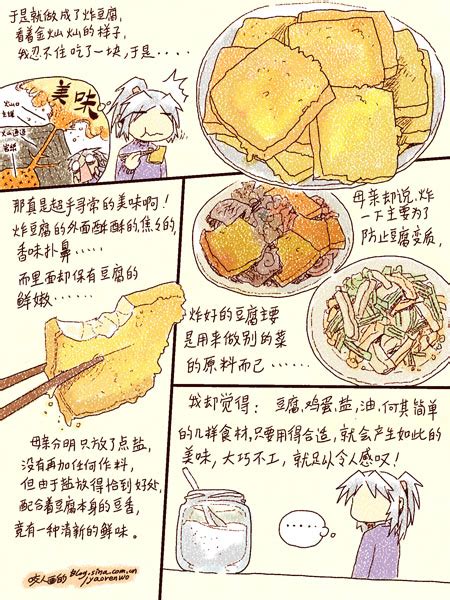 于是就做成了炸豆腐,
看着金灿灿的样子,
我忍不住吃了一块,于是····
美味
那真是超乎寻常的美味啊!
炸豆腐的外面酥酥的,焦焦的,
香味扑鼻·····
而里面却保有豆腐的
鲜嫩······
母亲却说,炸
一下主要为了
防止豆腐变质,
炸好的豆腐主要
是用来做别的菜
的原料而已······
母亲分明只放了点盐,
没有再加任何作料,
但由于盐放得恰到好处,
配合着豆腐本身的豆香,
竟有一种清新的鲜味。
我却觉得: 豆腐,鸡蛋,盐,油,何其简单
的几样食材,只要用得合适,就会产生如此的
美味,大巧不工,就足以令人感叹!
······
咬人画的 blog.sina.com.cn
/yaorenwo